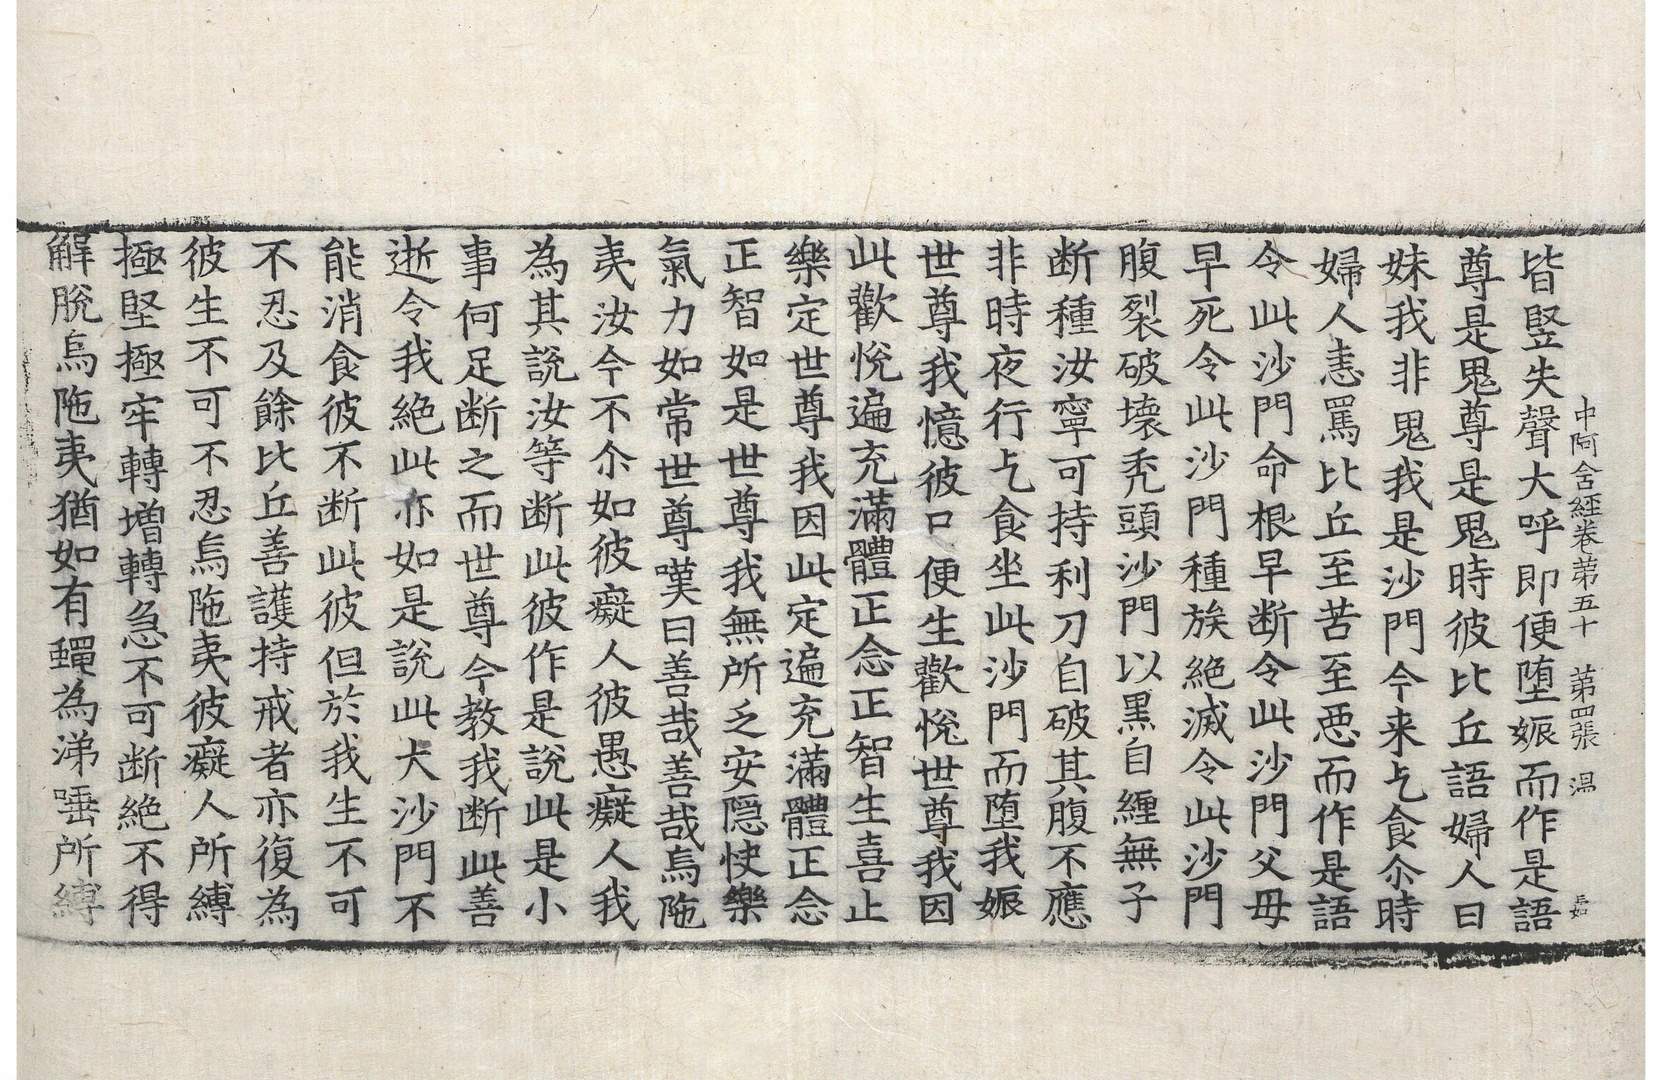 皆竪失聲大呼即便堕娠而作是語
中阿含經卷第五十 第四張 湯
尊是鬼尊是鬼時彼比丘語婦人曰
妹我非鬼我是沙門今来乞食尒時
婦人恚罵比丘至苦至惡而作是語
令此沙門命根早断令此沙門父母
早死令此沙門種族絶滅令此沙門
腹裂破壊秃頭沙門以黒自纏無子
断種汝寧可持利刀自破其腹不應
非時夜行乞食坐此沙門而堕我娠
世尊我憶彼已便生歡悅世尊我因
此歡悅遍充滿體正念正智生喜止
樂定世尊我因此定遍充滿體正念
正智如是世尊我無所乏安隠快樂
氣力如常世尊嘆曰善哉善哉烏陁
夷汝今不尒如彼癡人彼愚癡人我
為其說汝等断此彼作是說此是小
事何足断之而世尊今教我断此善
逝令我絶此亦如是説此大沙門不
能消食彼不断此彼但於我生不可
不忍及餘比丘善護持戒者亦復為
彼生不可不忍烏陁夷彼癡人所縛
極堅極牢轉増轉急不可断絶不得
解脫烏陁夷猶如有蠅為涕唾所縛